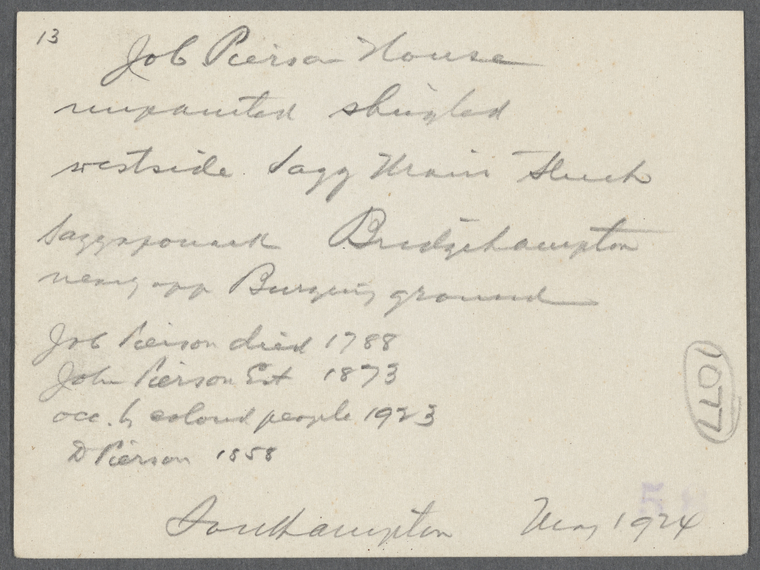 13
Job Pierson House
unpainted shingled
westside Sagg Main Street
Saggaponack Bridgehampton
nearly opp Burying ground
Job Pierson died 1788
John Pierson Est 1873
occ. by colored people 1923
D Pierson 1858
Southampton May 1924
1077